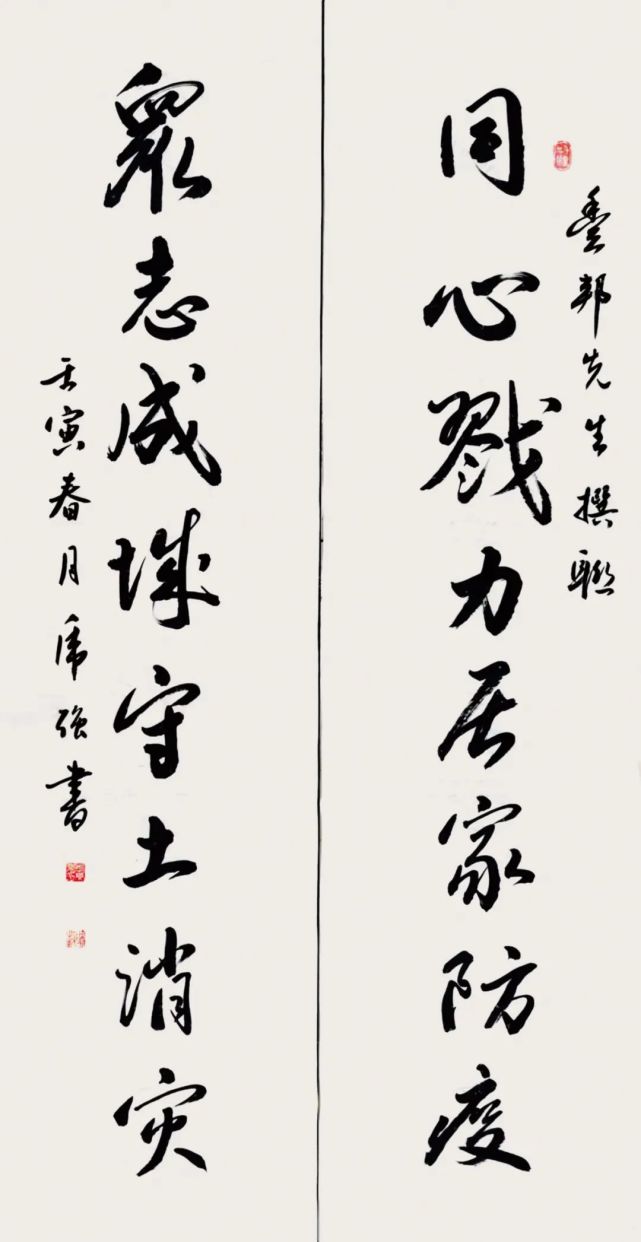 豐邦先生撰聯
同心戮力居家防疫
眾志成城守土消灾
壬寅春月虎強書